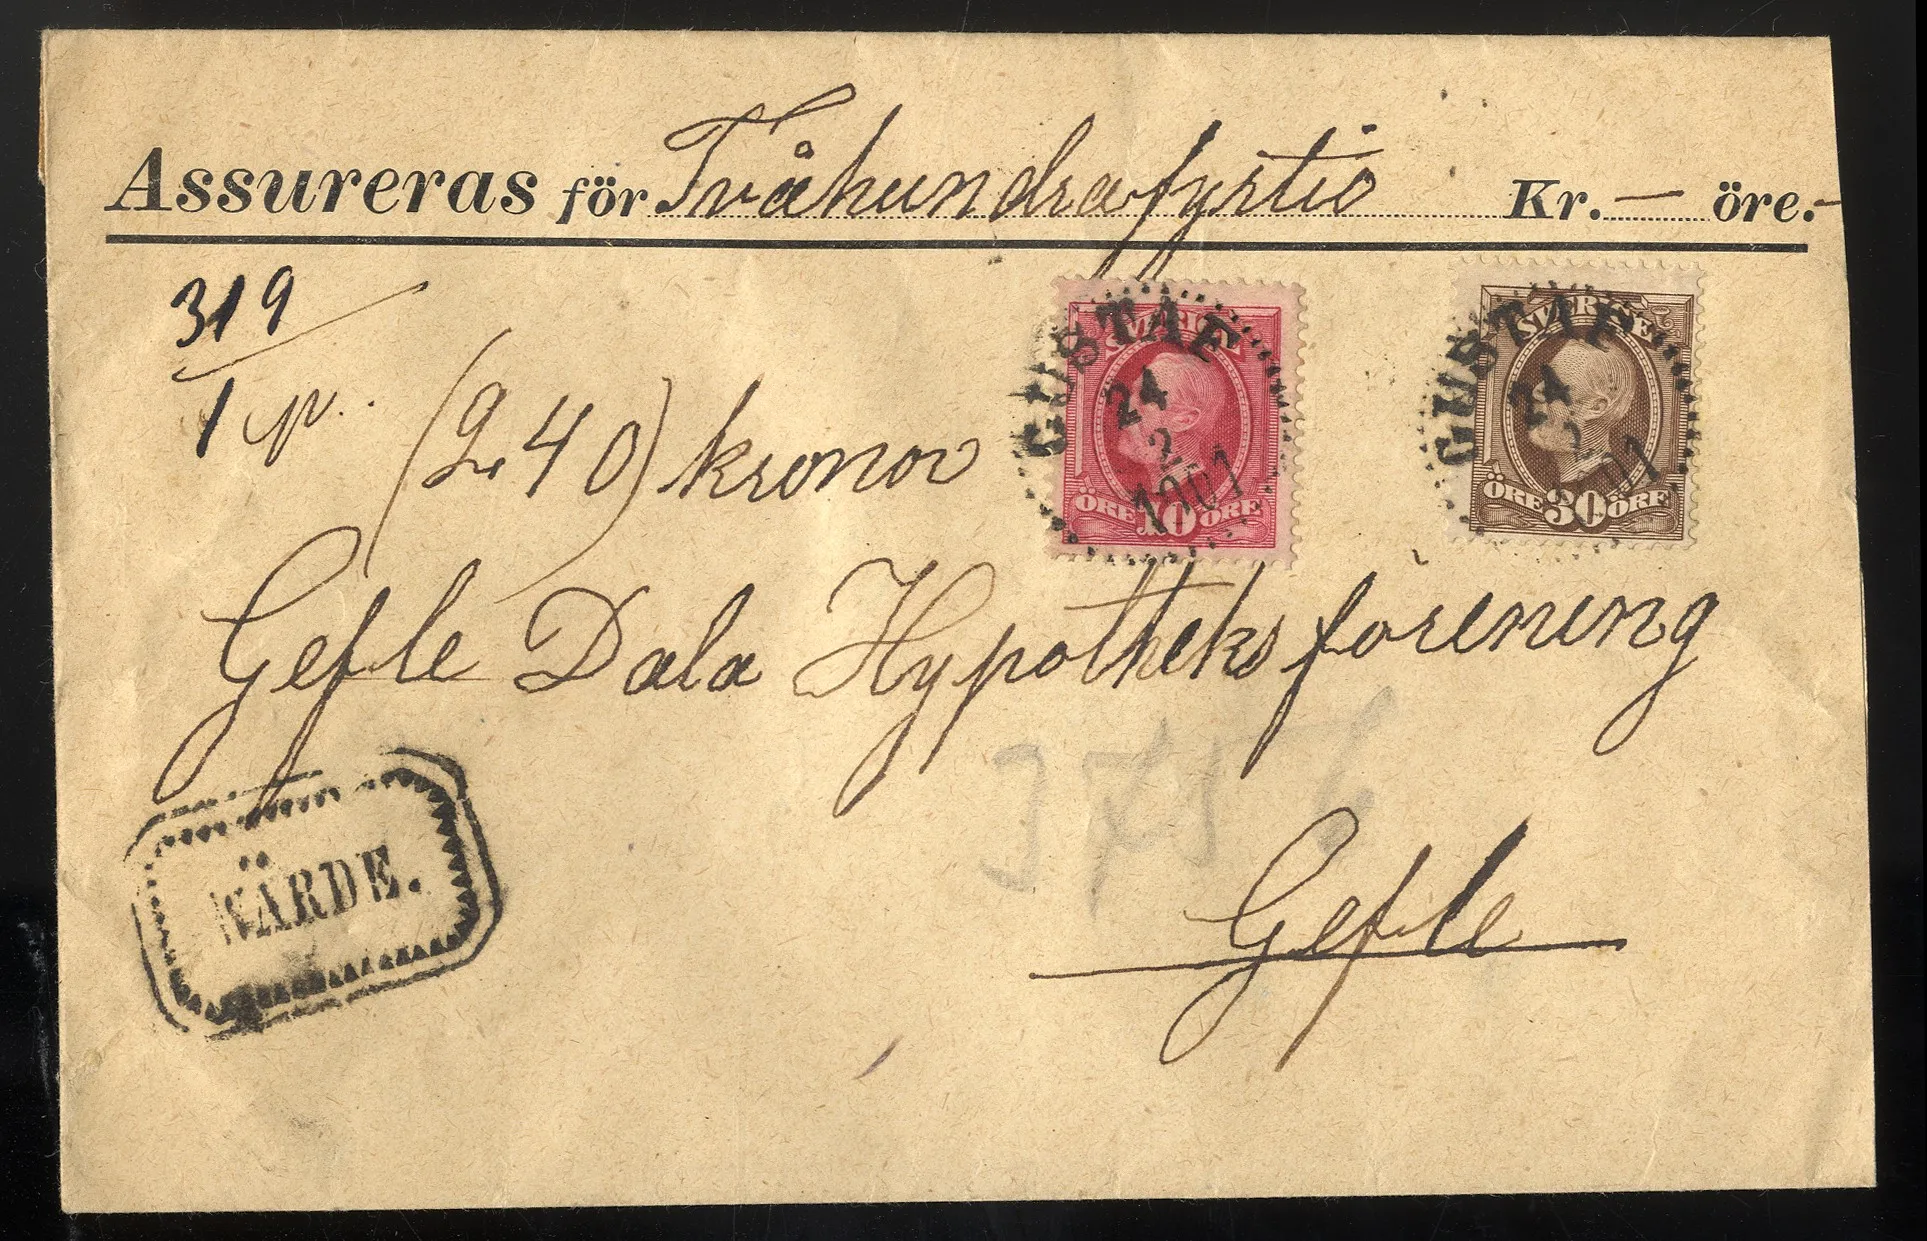 Assureras för Tvåhundrafyrtio Kr. — öre. -
319
1 p.
(240) kronor
GUSTAF
24
2
1901
SVERIGE
ÖRE 10 ÖRE
GUSTAF
24
2
SVERIGE
ÖRE 30 ÖRE
Gefle Dala Hypotheksförening
Gefle
VÄRDE.